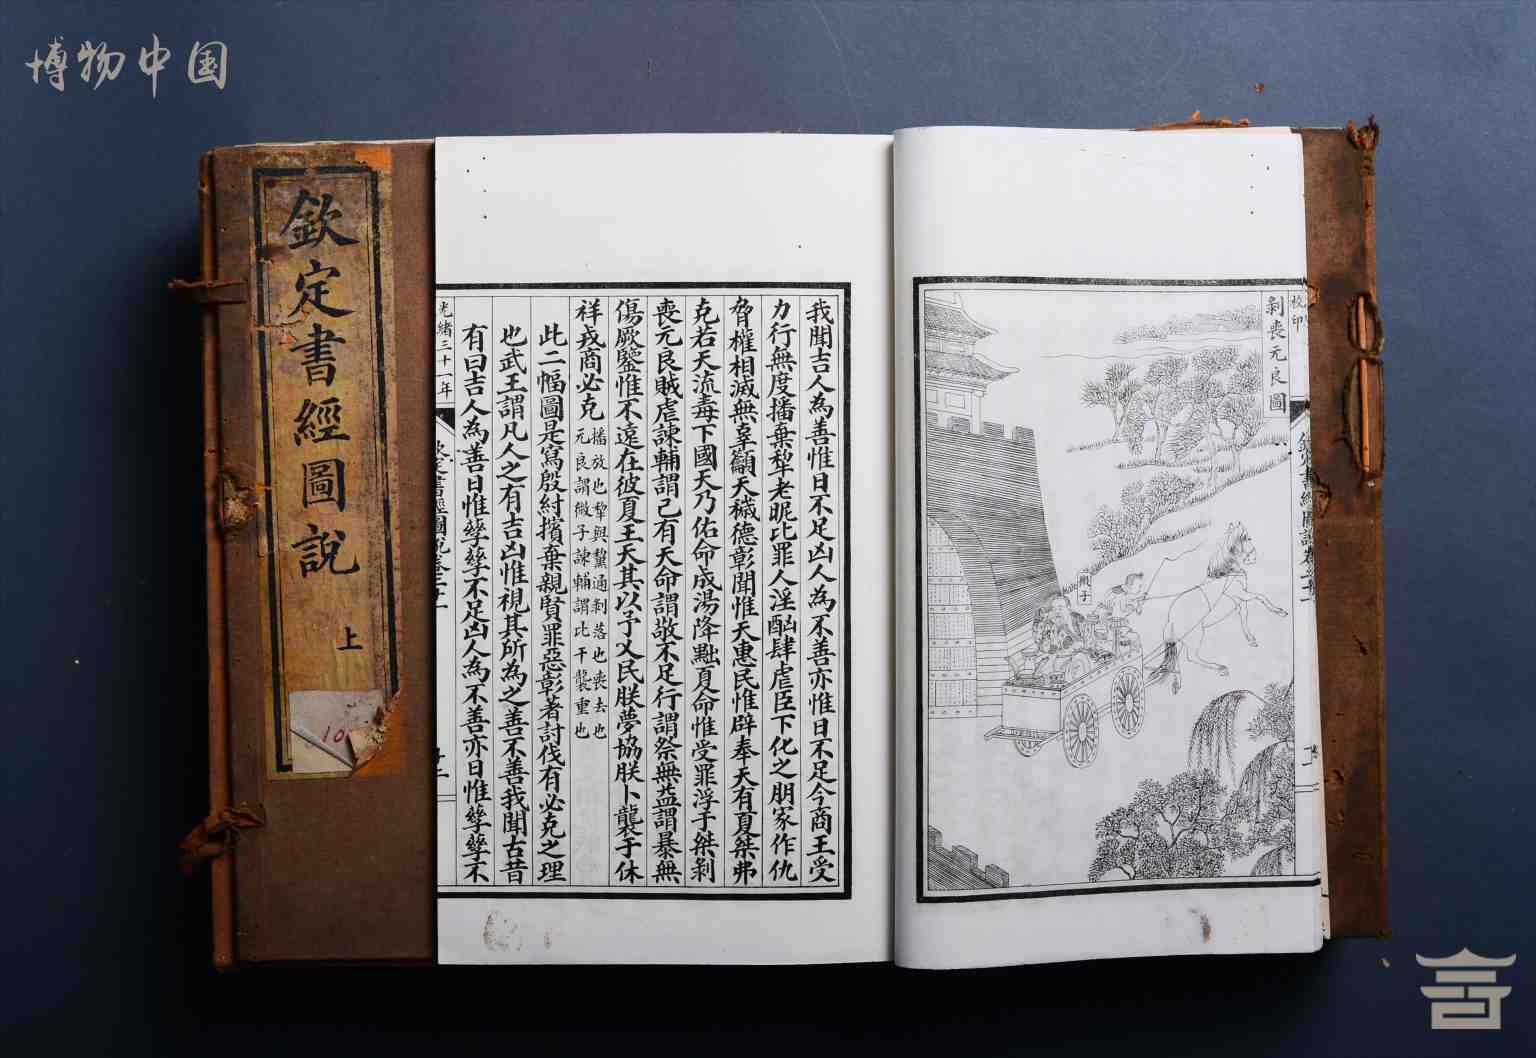 博物中国
欽定書經圖說
上
10
剝喪元良圖
校印
微子
我聞吉人為善惟日不足凶人為不善亦惟日不足今商王受
力行無度播棄犂老昵比罪人淫酗肆虐臣下化之朋家作仇
脅權相滅無辜籲天穢德彰聞惟天惠民惟辟奉天有夏桀弗
克若天流毒下國天乃佑命成湯降黜夏命惟受罪浮于桀剝
喪元良賊虐諫輔謂己有天命謂敬不足行謂祭無益謂暴無
傷厥鑒惟不遠在彼夏王天其以予乂民朕夢協朕卜襲于休
祥戎商必克
播放也犂與黧通剝落也喪去也
元良謂微子諫輔謂比干襲重也
此二幅圖是寫殷紂擯棄親賢罪惡彰著討伐有必克之理
也武王謂凡人之有吉凶惟視其所為之善不善我聞古昔
有曰吉人為善日惟孳孳不足凶人為不善亦日惟孳孳不
光緒三十一年